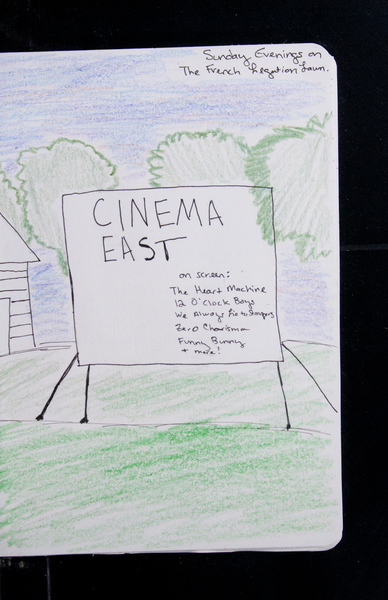 Sunday Evenings on
The French Legation Lawn.
CINEMA
EAST
on screen:
The Heart Machine
12 O'Clock Boys
We Always Lie to Strangers
Zero Charisma
Funny Bunny
+ more!